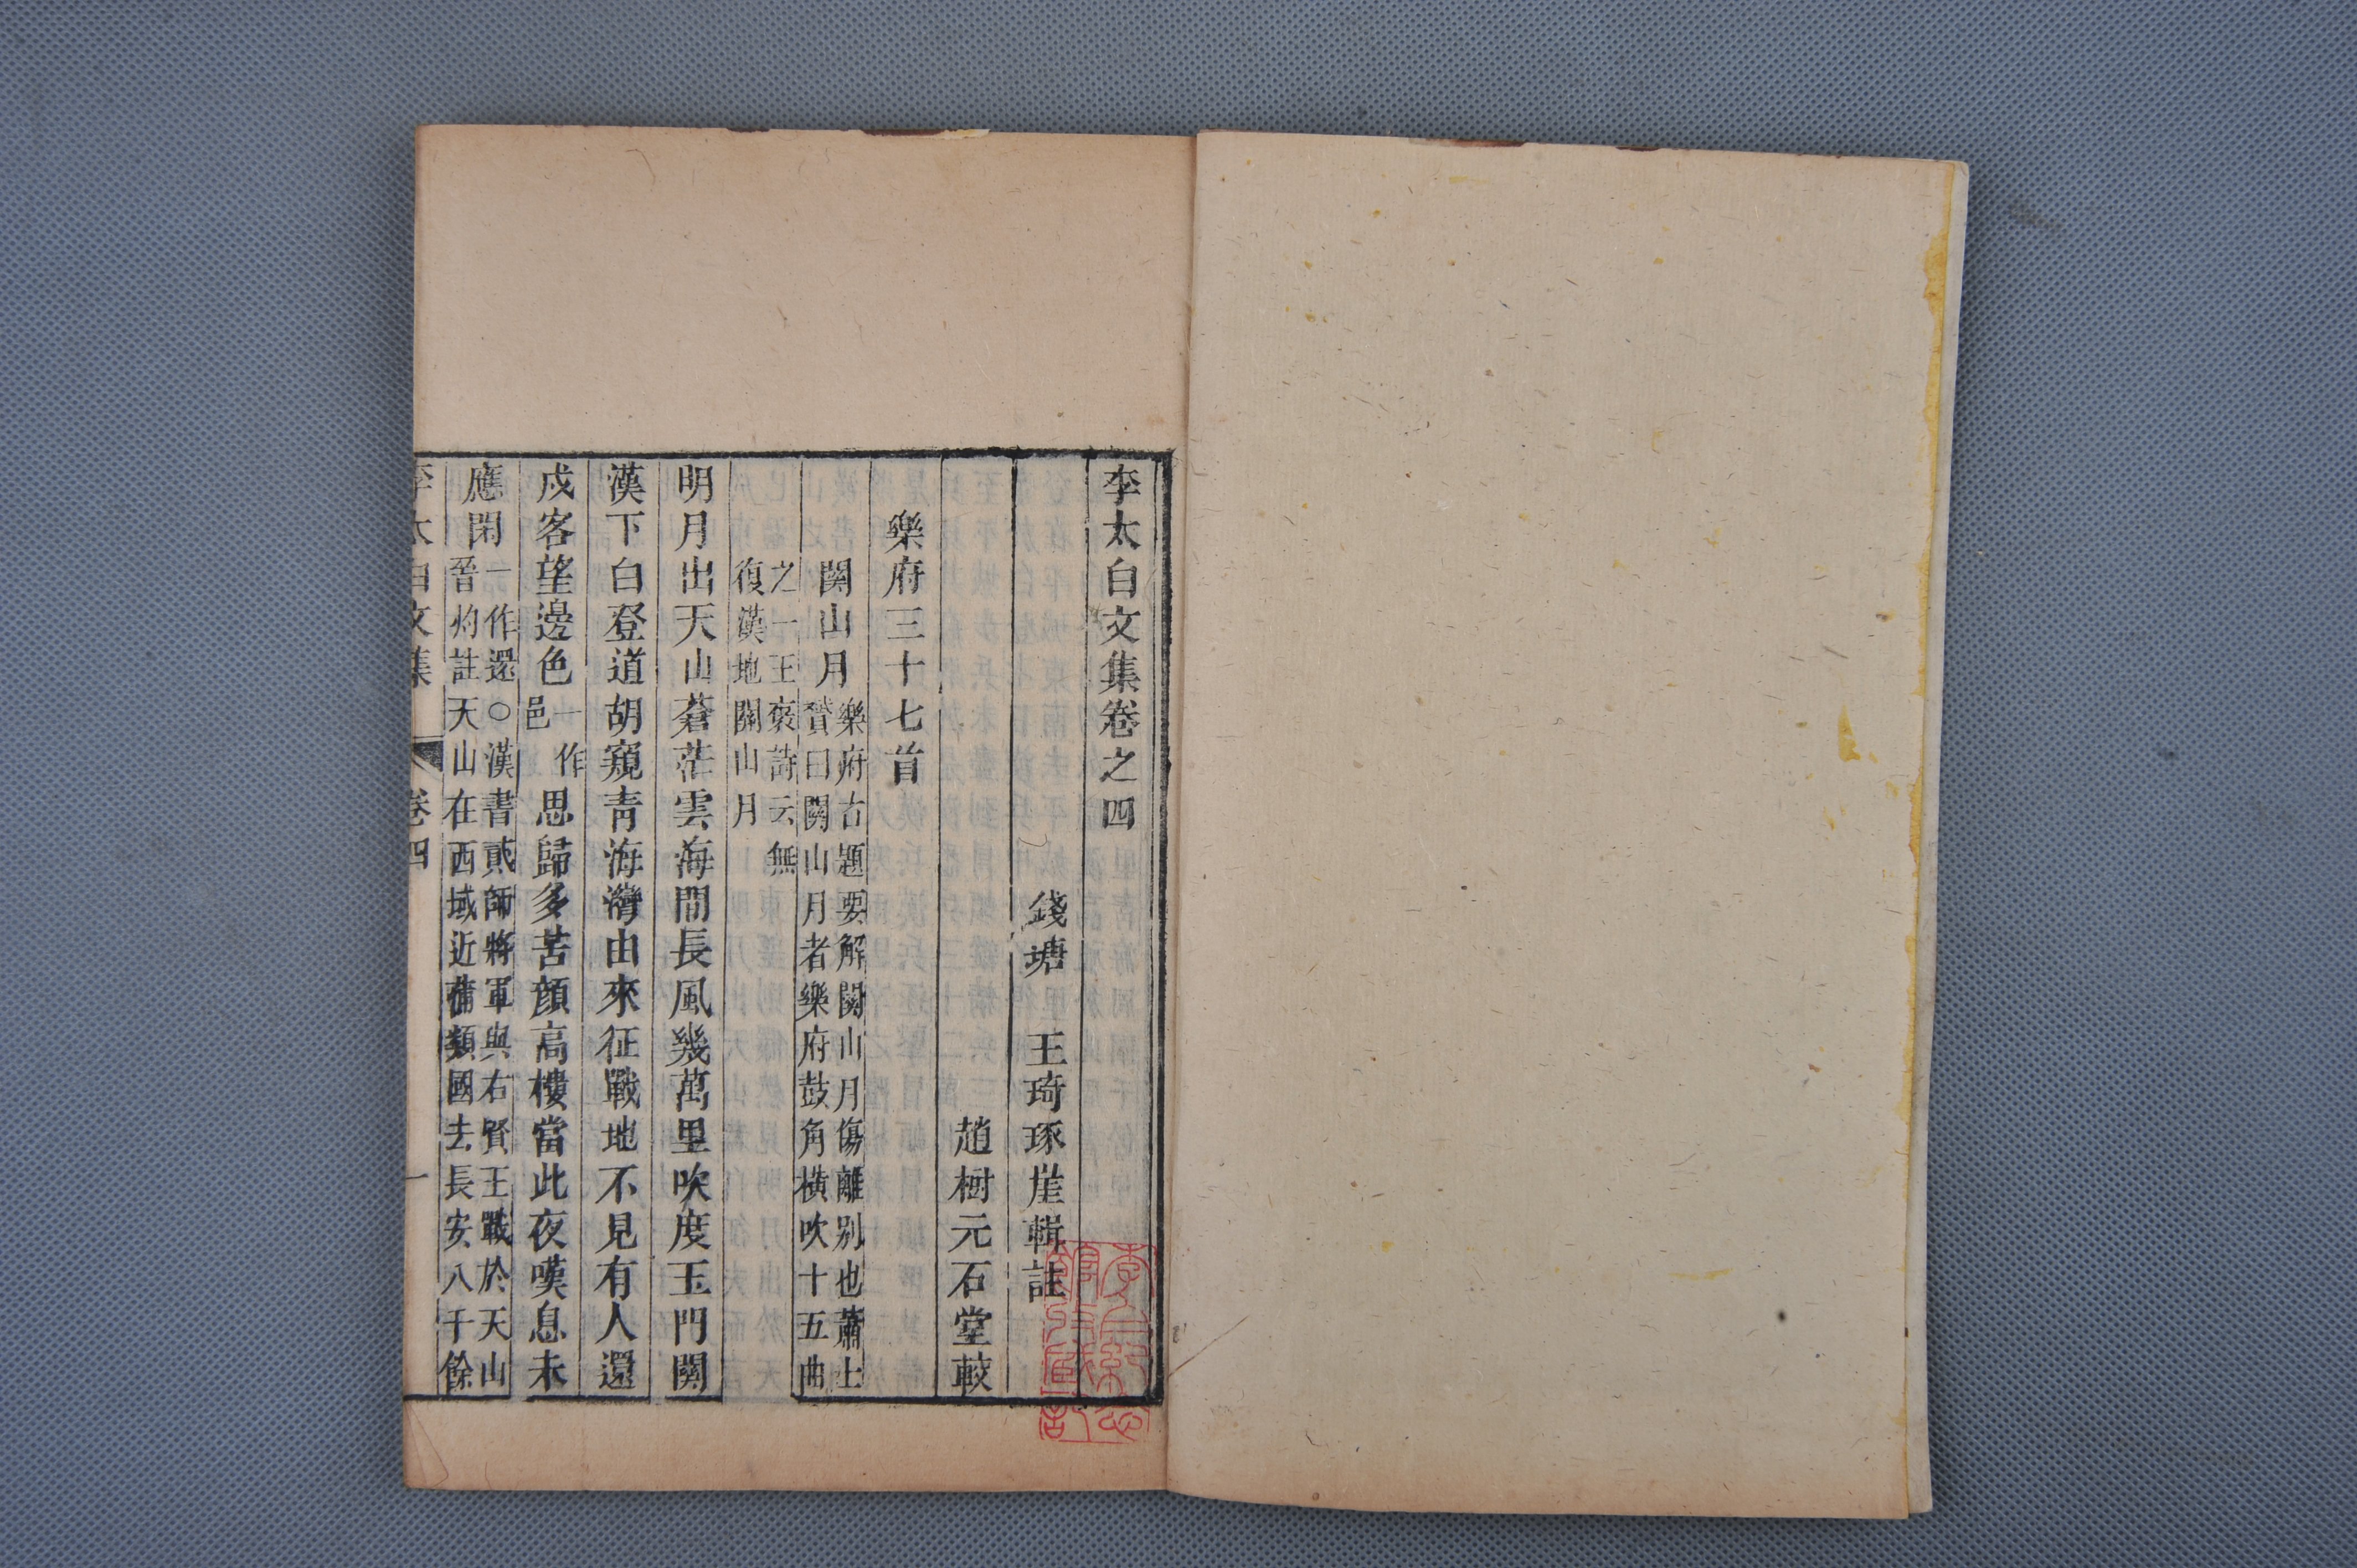 李太白文集卷之四
錢塘 王琦琢崖輯註
趙樹元石堂較
樂府三十七首
關山月
樂府古題要解關山月傷離別也蕭士
贇曰關山月者樂府鼓角橫吹十五曲
之一王褒詩云無
復漢地關山月
明月出天山蒼茫雲海間長風幾萬里吹度玉門關
漢下白登道胡窺青海灣由來征戰地不見有人還
戍客望邊色一作邑思歸多苦顏高樓當此夜嘆息未
應閑
一作還○漢書貳師將軍與右賢王戰於天山
晉灼註天山在西域近蒲類國去長安八千餘
李太白文集 卷四 一